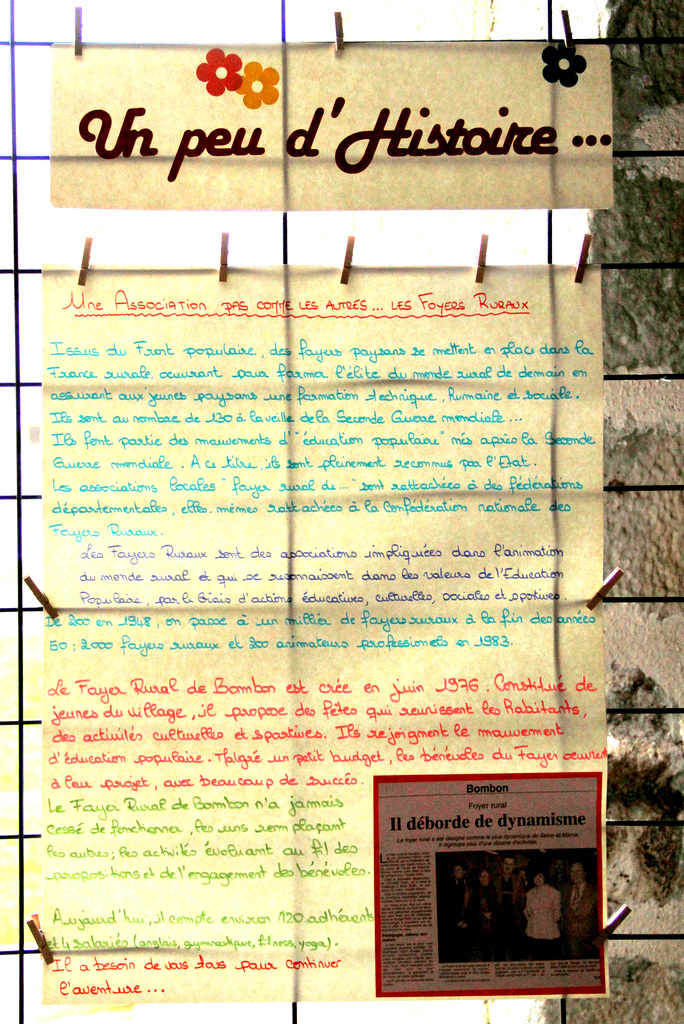 Un peu d'Histoire...
Une Association pas comme les autres... les Foyers Ruraux
Issus du Front populaire, des foyers paysans se mettent en place dans la
France rurale, oeuvrant pour former l'élite du monde rural de demain en
assurant aux jeunes paysans une formation technique, humaine et sociale.
Ils sont au nombre de 130 à la veille de la Seconde Guerre mondiale...
Ils font partie des mouvements d'"éducation populaire" nés après la Seconde
Guerre mondiale. A ce titre, ils sont pleinement reconnus par l'Etat.
Les associations locales "foyer rural de..." sont rattachées à des fédérations
départementales, elles-mêmes rattachées à la Confédération nationale des
Foyers Ruraux.
Les Foyers Ruraux sont des associations impliquées dans l'animation
du monde rural et qui se reconnaissent dans les valeurs de l'Education
Populaire, par le biais d'actions éducatives, culturelles, sociales et sportives.
De 200 en 1948, on passe à un millier de foyers ruraux à la fin des années
50 ; 2000 foyers ruraux et 200 animateurs professionels en 1983.
Le Foyer Rural de Bombon est crée en juin 1976. Constitué de
jeunes du village, il propose des fêtes qui reunissent les habitants,
des activités culturelles et sportives. Ils rejoignent le mouvement
d'éducation populaire. Malgré un petit budget, les bénévoles du Foyer oeuvrent
à leur projet, avec beaucoup de succés.
Le Foyer Rural de Bombon n'a jamais
cessé de fonctionner, les uns remplaçant
les autres ; les activités évoluant au fil des
propositions et de l'engagement des bénévoles.
Aujourd'hui, il compte environ 120 adhérents
et 4 salariés (anglais, gymnastique, fitness, yoga).
Il a besoin de vous tous pour continuer
l'aventure...
Bombon
Foyer rural
Il déborde de dynamisme
Le foyer rural a été désigné comme le plus dynamique de Seine-et-Marne.
Il regroupe plus d'une dizaine d'activités.